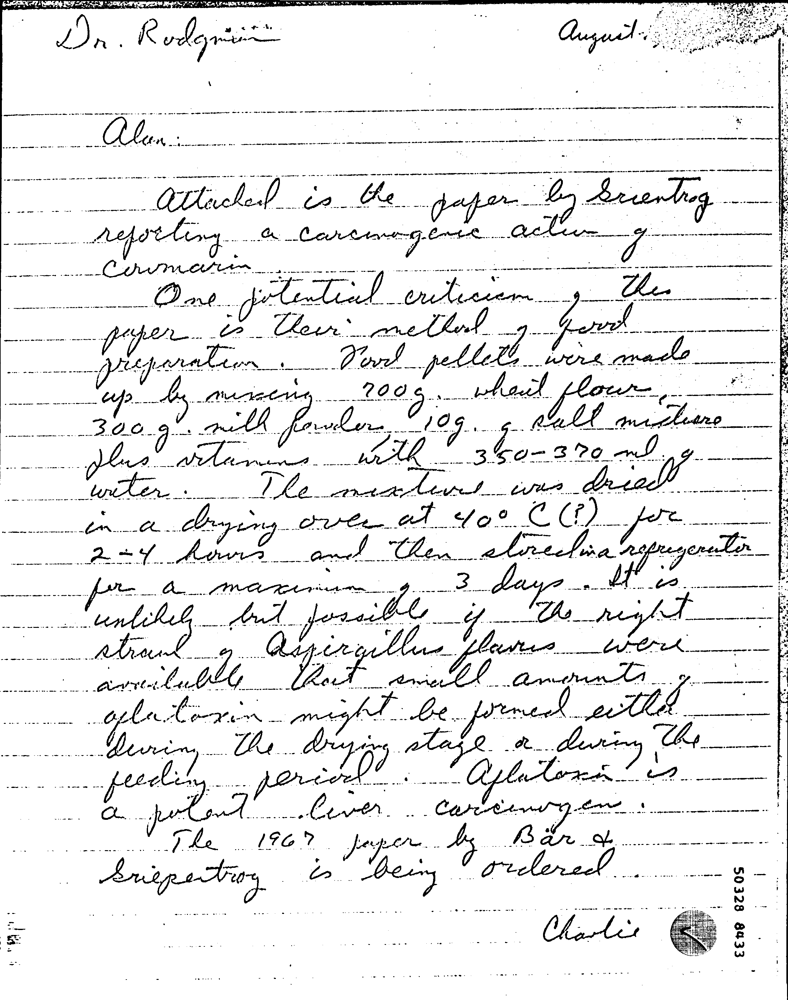 Dr. Rodgman
August
Alan:
Attached is the paper by Grientrog
reporting a carcinogenic action of
coumarin.
One potential criticism of this
paper is their method of food
preparation. Food pellets were made
up by mixing 700g. wheat flour,
300g. milk powder 10g. of salt mixture
plus vitamins with 350-370 ml of
water. The mixture was dried
in a drying oven at 40° C (?) for
2-4 hours and then stored in a refrigerator
for a maximum of 3 days. It is
unlikely but possible if the right
strain of Aspirgillus flavus were
available that small amounts of
aflatoxin might be formed either
during the drying stage or during the
feeding period. Aflatoxin is
a potent liver carcinogen.
The 1967 paper by Bär &
Griepentrog is being ordered.
Charlie
50328 8433